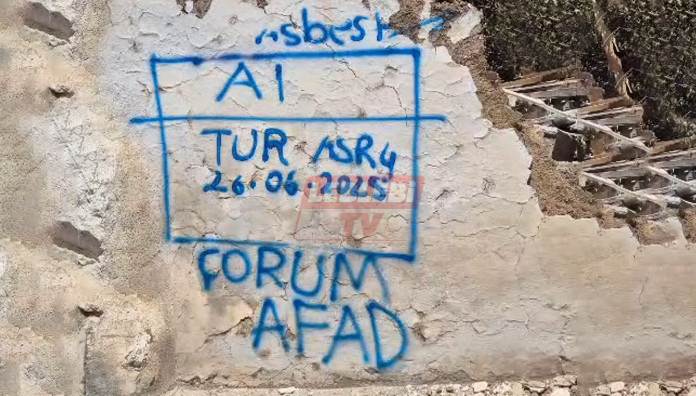 Asbest ?
A1
TUR ASR4
26.06.2025
FORUM
AFAD